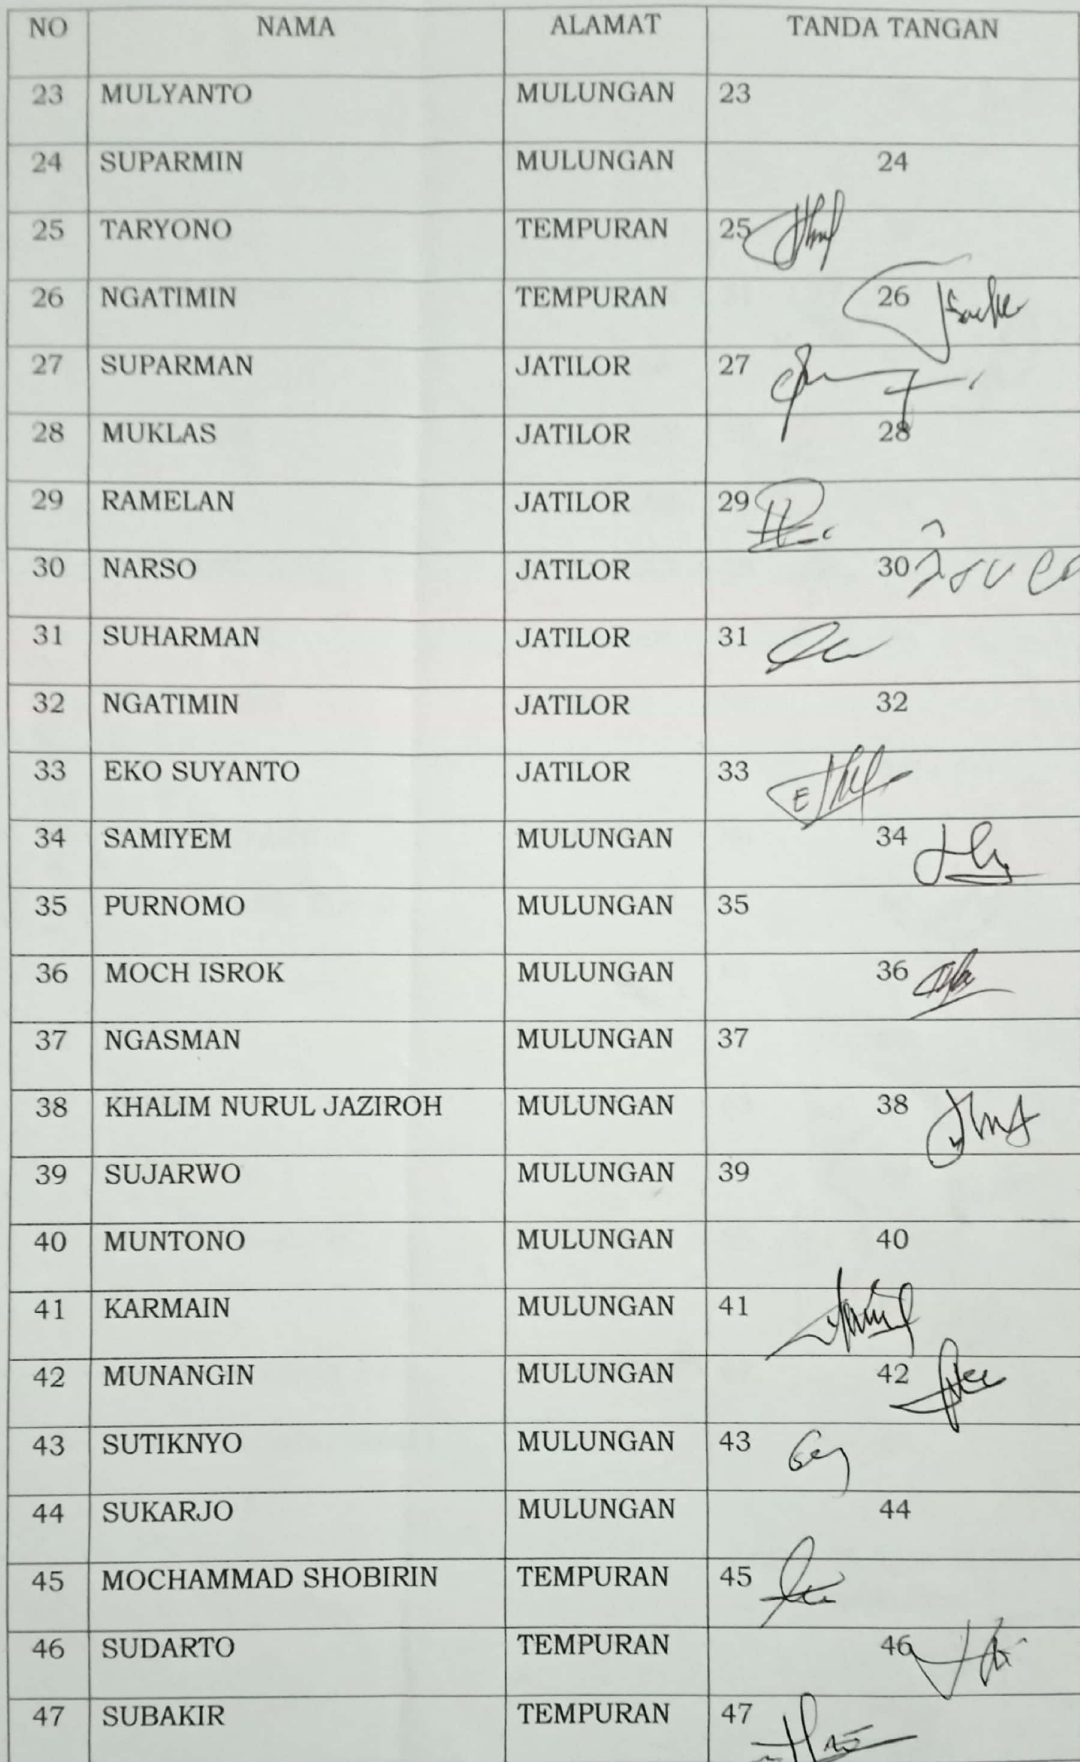 NO NAMA ALAMAT TANDA TANGAN
23 MULYANTO MULUNGAN 23
24 SUPARMIN MULUNGAN 24
25 TARYONO TEMPURAN 25
26 NGATIMIN TEMPURAN 26
27 SUPARMAN JATILOR 27
28 MUKLAS JATILOR 28
29 RAMELAN JATILOR 29
30 NARSO JATILOR 30
31 SUHARMAN JATILOR 31
32 NGATIMIN JATILOR 32
33 EKO SUYANTO JATILOR 33
34 SAMIYEM MULUNGAN 34
35 PURNOMO MULUNGAN 35
36 MOCH ISROK MULUNGAN 36
37 NGASMAN MULUNGAN 37
38 KHALIM NURUL JAZIROH MULUNGAN 38
39 SUJARWO MULUNGAN 39
40 MUNTONO MULUNGAN 40
41 KARMAIN MULUNGAN 41
42 MUNANGIN MULUNGAN 42
43 SUTIKNYO MULUNGAN 43
44 SUKARJO MULUNGAN 44
45 MOCHAMMAD SHOBIRIN TEMPURAN 45
46 SUDARTO TEMPURAN 46
47 SUBAKIR TEMPURAN 47